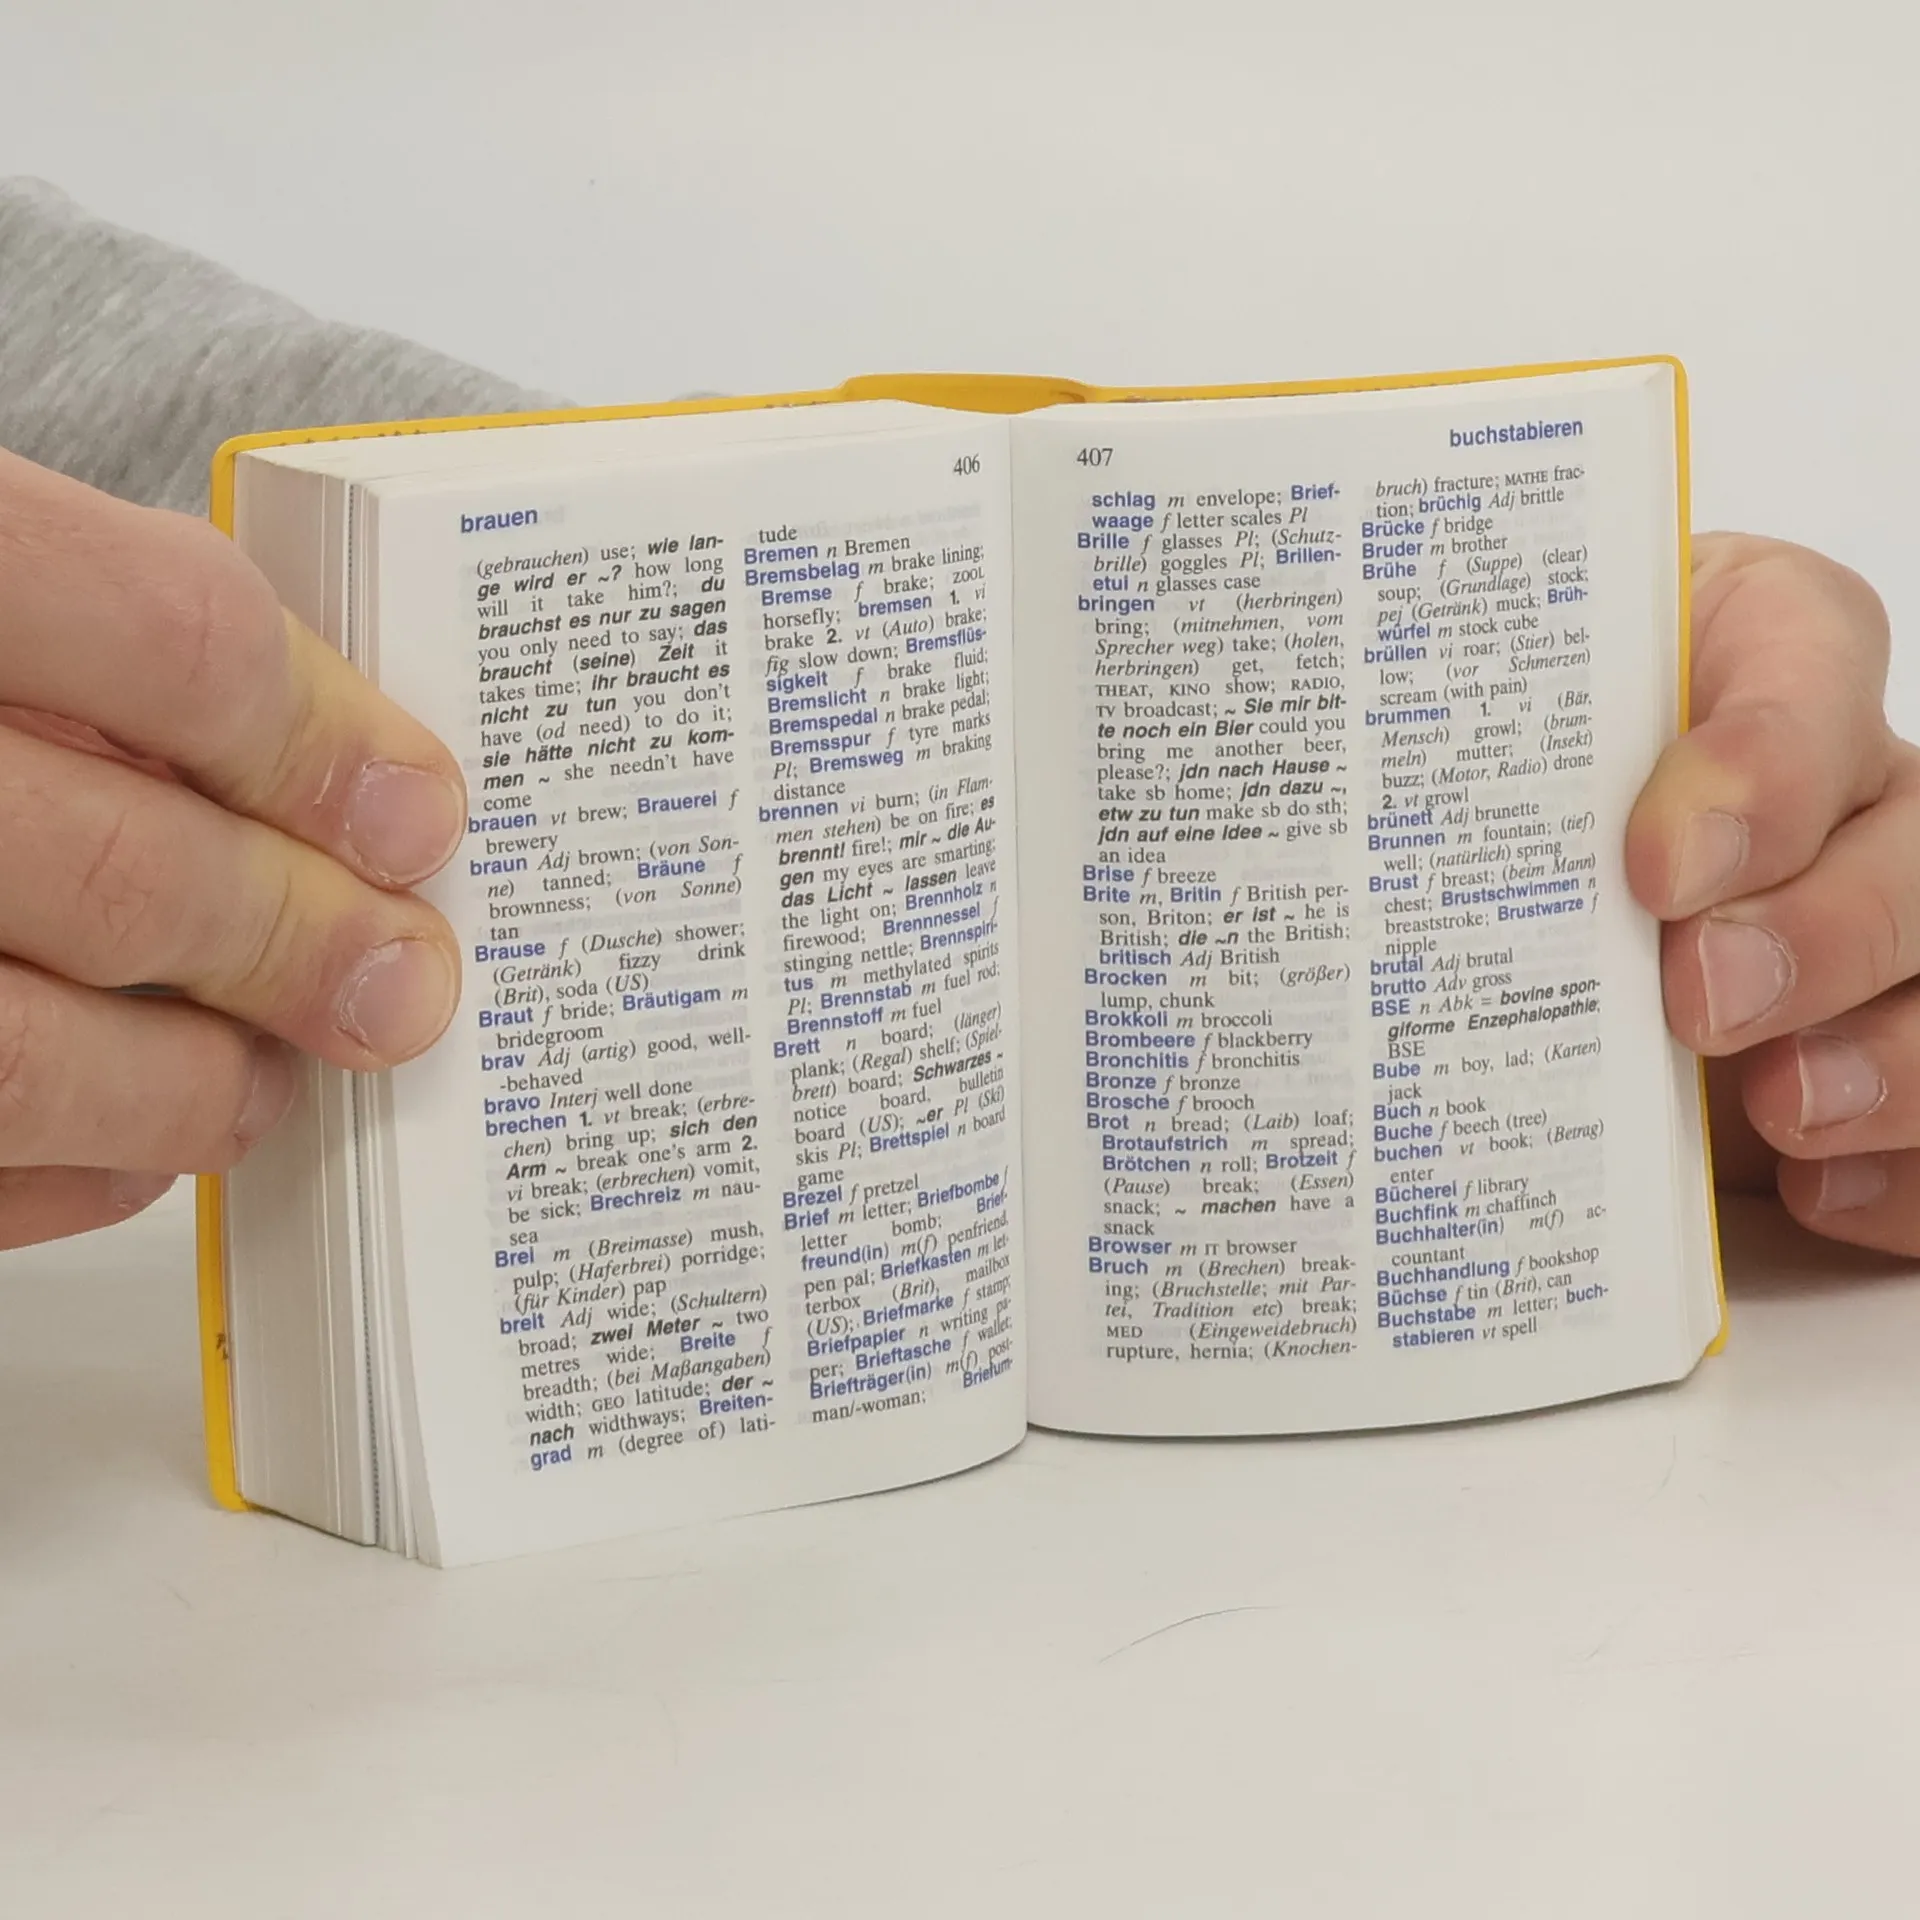 brauen
406
(gebrauchen) use; wie lan-
ge wird er ~? how long
will it take him?; du
brauchst es nur zu sagen
you only need to say; das
braucht (seine) Zeit it
takes time; ihr braucht es
nicht zu tun you don't
have (od need) to do it;
sie hätte nicht zu kom-
men ~ she needn't have
come
brauen vt brew; Brauerei f
brewery
braun Adj brown; (von Son-
ne) tanned; Bräune f
brownness; (von Sonne)
tan
Brause f (Dusche) shower;
(Getränk) fizzy drink
(Brit), soda (US)
Braut f bride; Bräutigam m
bridegroom
brav Adj (artig) good, well-
-behaved
bravo Interj well done
brechen 1. vt break; (erbre-
chen) bring up; sich den
Arm ~ break one's arm 2.
vi break; (erbrechen) vomit,
be sick; Brechreiz m nau-
sea
Brei m (Breimasse) mush,
pulp; (Haferbrei) porridge;
(für Kinder) pap
breit Adj wide; (Schultern)
broad; zwei Meter ~ two
metres wide; Breite f
breadth; (bei Maßangaben)
width; GEO latitude; der ~
nach widthways; Breiten-
grad m (degree of) lati-
tude
Bremen n Bremen
Bremsbelag m brake lining;
Bremse f brake; ZOOL
horsefly; bremsen 1. vi
brake 2. vt (Auto) brake;
fig slow down; Bremsflüs-
sigkeit f brake fluid;
Bremslicht n brake light;
Bremspedal n brake pedal;
Bremsspur f tyre marks
Pl; Bremsweg m braking
distance
brennen vi burn; (in Flam-
men stehen) be on fire; es
brennt! fire!; mir ~ die Au-
gen my eyes are smarting;
das Licht ~ lassen leave
the light on; Brennholz n
firewood; Brennnessel f
stinging nettle; Brennspiri-
tus m methylated spirits
Pl; Brennstab m fuel rod;
Brennstoff m fuel
Brett n board; (länger)
plank; (Regal) shelf; (Spiel-
brett) board; Schwarzes ~
notice board, bulletin
board (US); ~er Pl (Ski)
skis Pl; Brettspiel n board
game
Brezel f pretzel
Brief m letter; Briefbombe f
letter bomb; Brief-
freund(in) m(f) penfriend,
pen pal; Briefkasten m let-
terbox (Brit), mailbox
(US); Briefmarke f stamp;
Briefpapier n writing pa-
per; Brieftasche f wallet;
Briefträger(in) m(f) post-
man/-woman; Briefum-
407
buchstabieren
schlag m envelope; Brief-
waage f letter scales Pl
Brille f glasses Pl; (Schutz-
brille) goggles Pl; Brillen-
etui n glasses case
bringen vt (herbringen)
bring; (mitnehmen, vom
Sprecher weg) take; (holen,
herbringen) get, fetch;
THEAT, KINO show; RADIO,
TV broadcast; ~ Sie mir bit-
te noch ein Bier could you
bring me another beer,
please?; jdn nach Hause ~
take sb home; jdn dazu ~,
etw zu tun make sb do sth;
jdn auf eine Idee ~ give sb
an idea
Brise f breeze
Brite m, Britin f British per-
son, Briton; er ist ~ he is
British; die ~n the British;
britisch Adj British
Brocken m bit; (größer)
lump, chunk
Brokkoli m broccoli
Brombeere f blackberry
Bronchitis f bronchitis
Bronze f bronze
Brosche f brooch
Brot n bread; (Laib) loaf;
Brotaufstrich m spread;
Brötchen n roll; Brotzeit f
(Pause) break; (Essen)
snack; ~ machen have a
snack
Browser m IT browser
Bruch m (Brechen) break-
ing; (Bruchstelle; mit Par-
tei, Tradition etc) break;
MED (Eingeweidebruch)
rupture, hernia; (Knochen-
bruch) fracture; MATHE frac-
tion; brüchig Adj brittle
Brücke f bridge
Bruder m brother
Brühe f (Suppe) (clear)
soup; (Grundlage) stock;
pej (Getränk) muck; Brüh-
würfel m stock cube
brüllen vi roar; (Stier) bel-
low; (vor Schmerzen)
scream (with pain)
brummen 1. vi (Bär,
Mensch) growl; (brum-
meln) mutter; (Insekt)
buzz; (Motor, Radio) drone
2. vt growl
brünett Adj brunette
Brunnen m fountain; (tief)
well; (natürlich) spring
Brust f breast; (beim Mann)
chest; Brustschwimmen n
breaststroke; Brustwarze f
nipple
brutal Adj brutal
brutto Adv gross
BSE n Abk = bovine spon-
giforme Enzephalopathie;
BSE
Bube m boy, lad; (Karten)
jack
Buch n book
Buche f beech (tree)
buchen vt book; (Betrag)
enter
Bücherei f library
Buchfink m chaffinch
Buchhalter(in) m(f) ac-
countant
Buchhandlung f bookshop
Büchse f tin (Brit), can
Buchstabe m letter; buch-
stabieren vt spell